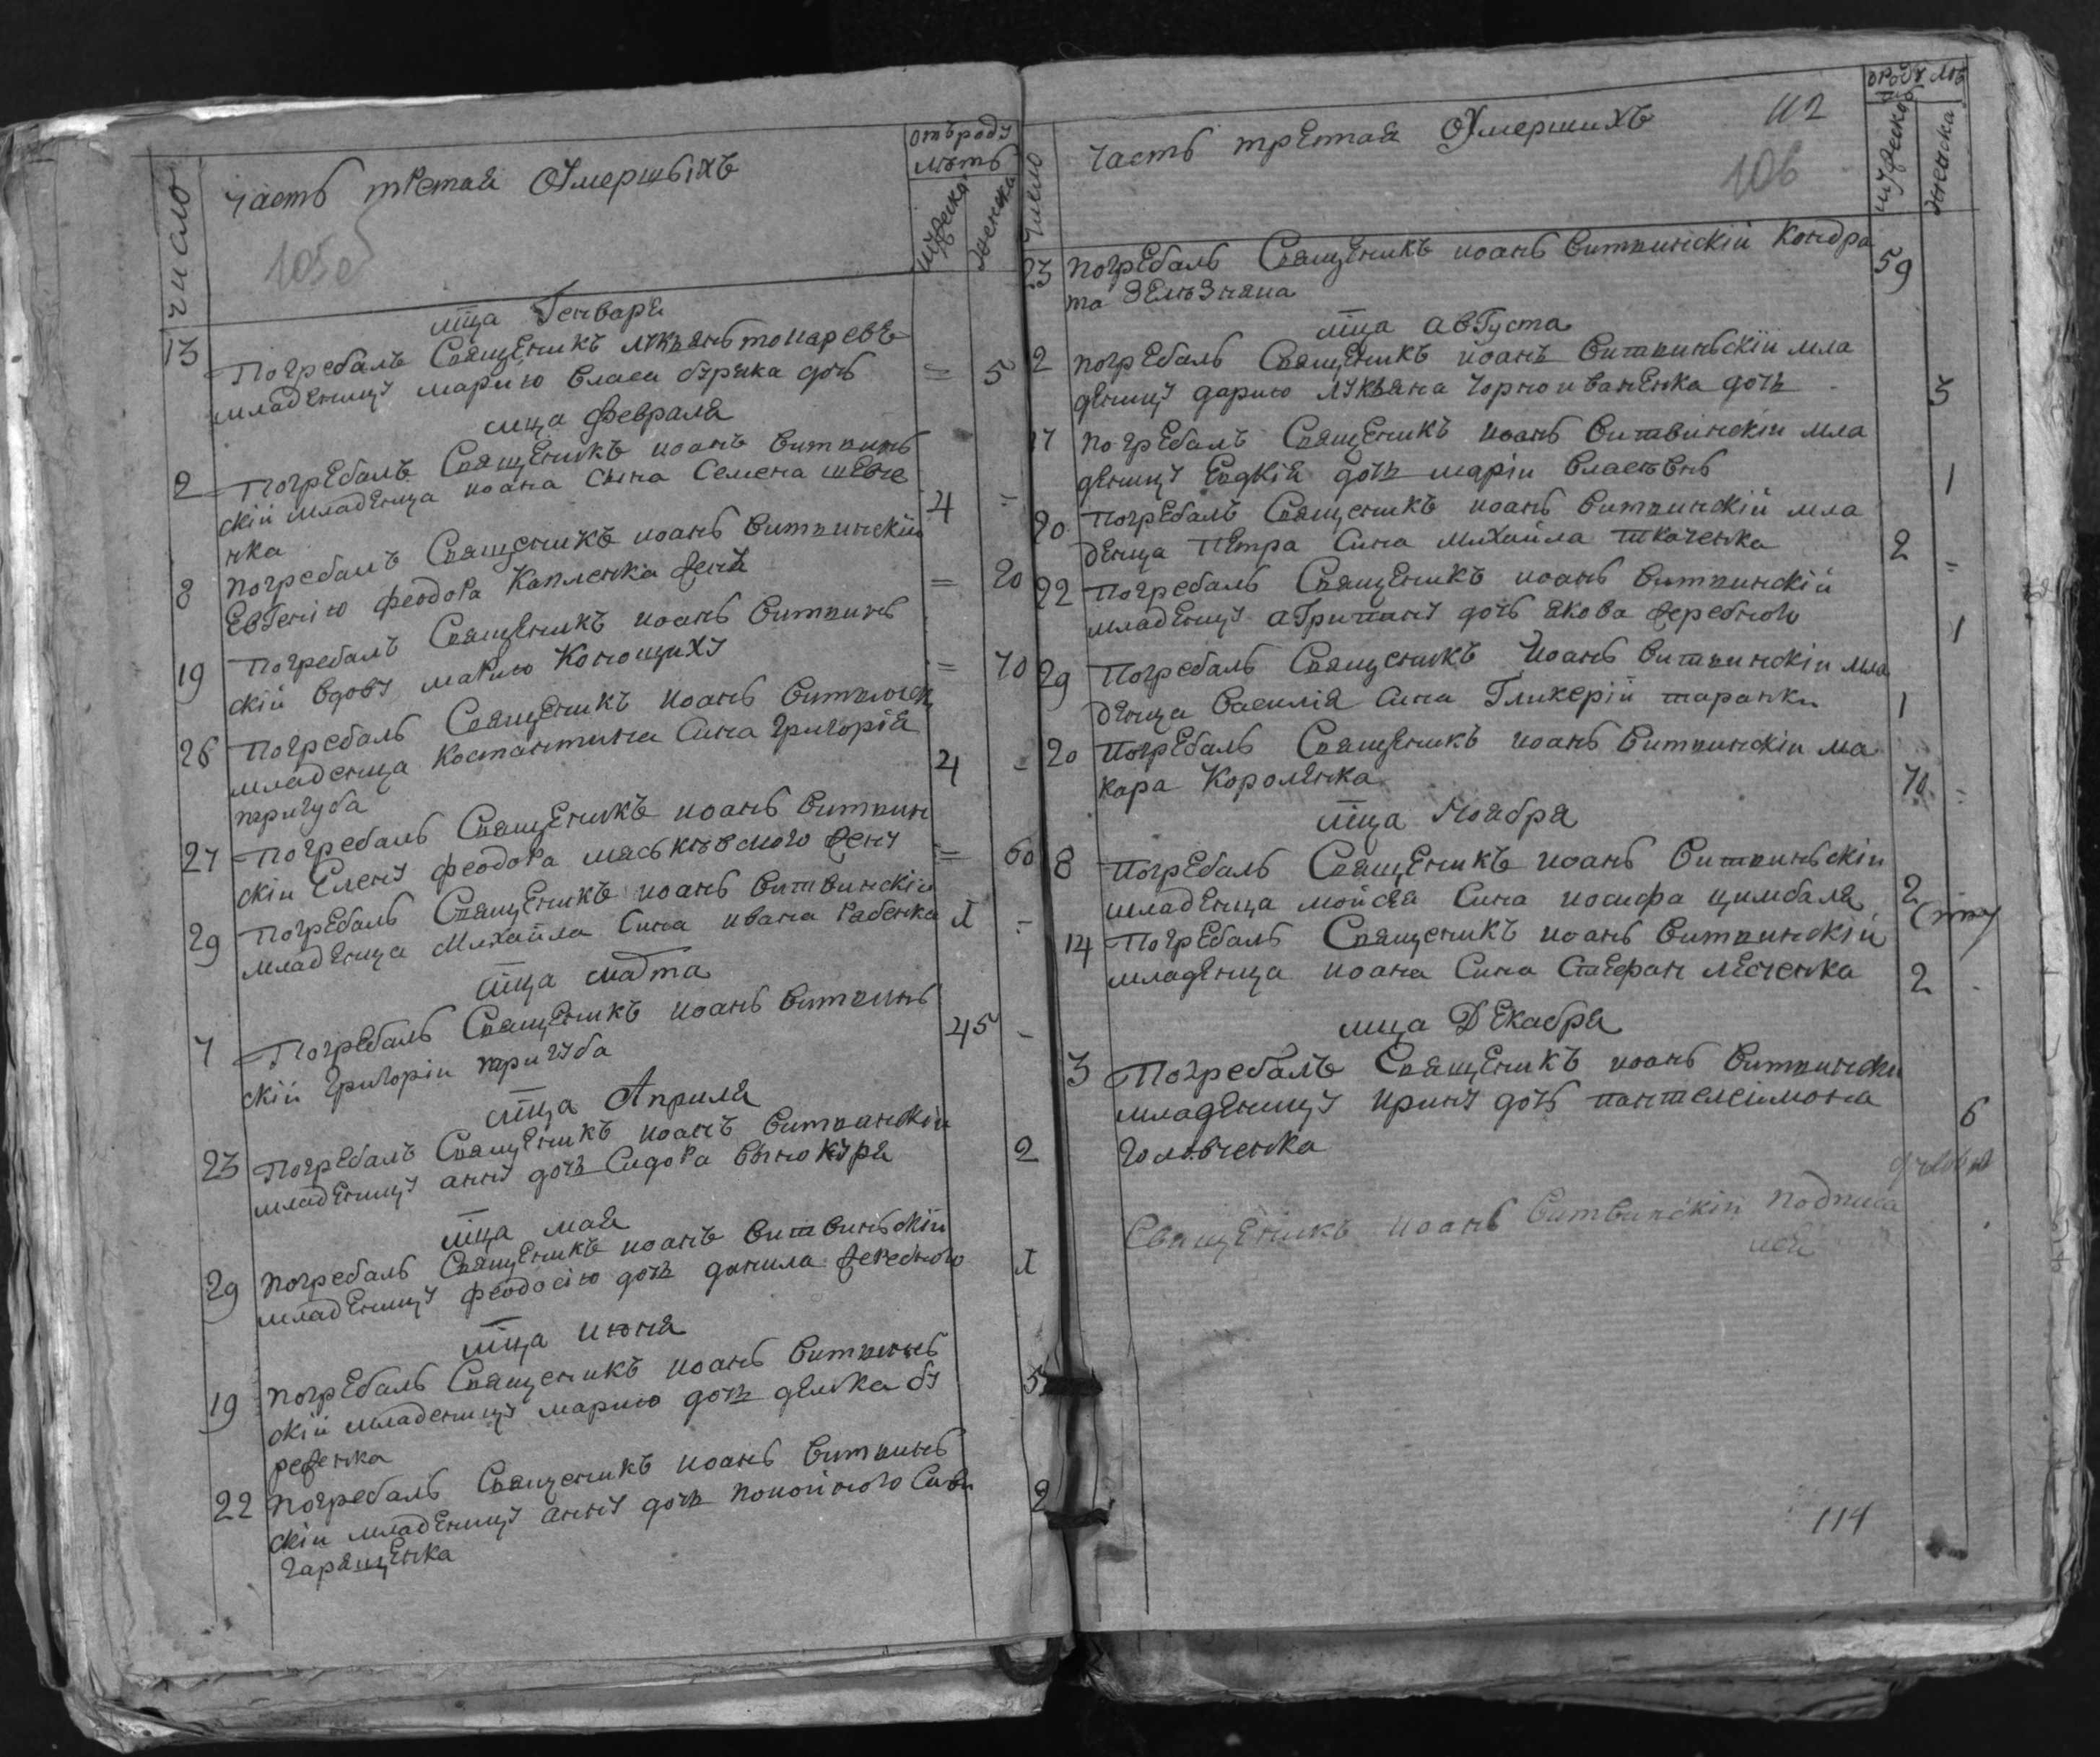 число
часть третая Умершыхъ
отъ роду
лѣтъ
мужеска
женска
105об
мца Генваря
13 Погребалъ Священикъ лукьянъ
младеницу марию власа бурика дочь = 5
мца февраля
2 Погребалъ Священикъ иоанъ Витвинь
скій младенца иоана сына Семена шевче 4 =
нка
8 погребалъ Священикъ иоанъ Витвинскій
Евгенію феодора Капленка жена = 20
19 Погребалъ Священикъ иоанъ Витвинь
скій вдову марию Коношиху = 70
26 Погребалъ Священикъ иоанъ
младенца Костантина Сина григорія 4 =
пригуба
27 Погребалъ Священикъ иоанъ Витвин
скіи Елену феодора жену = 60
29 Погребалъ Священикъ иоанъ Витвинскіи
младенца Михайла Сина ивана рабенка 1 =
мца марта
7 Погребалъ Священикъ иоанъ Витвинь
скій григоріи пригуба 45 -
мца Априля
23 Погребалъ Священикъ иоанъ Витвинскіи
младеницу анну дочь Сидора винокура 2
мца мая
29 погребалъ Священикъ иоанъ Витвиньскій
младеницу феодосію дочь данила жеребного 1
мца июня
19 погребалъ Священикъ иоанъ Витвинь
скій младеницу марию дочь дѣмка бу 5
реженка
22 погребалъ Священикъ иоанъ Витвинь
скіи младеницу анну дочь покойного Сави 2
гаращенка
число
часть третая Умершихъ
112
106
лѣ
мужеска
женска
23 погребалъ Священикъ иоанъ Витвинскій Кондра 59
та Зелѣзняка
мца августа
2 погребалъ Священикъ иоанъ Витвиньскіи мла
деницу дарию лукьяна чорноиваненка дочь 3
17 погребалъ Священикъ иоанъ Витвинскіи мла
деницу дочь маріи 1
20 погребалъ Священикъ иоанъ Витвинскій мла
денца Петра Сина михайла ткаченка 2 =
22 погребалъ Священикъ иоанъ Витвинскій
младеницу агрипину дочь якова жеребного 1
29 Погребалъ Священикъ Иоанъ Витвинскіи мла
денца Василія Сина Гликерій таранки 1
20 погребалъ Священикъ иоанъ Витвинскіи ма
кара Короленка 70 =
мца Ноября
8 погребалъ Священикъ иоанъ Витвиньскіи
младенца мойсея Сина иосифа цимбаля 2
14 Погребалъ Священикъ иоанъ Витвинскій
младенца иоана Сина Стефан лесченка 2 -
мца Декабря
3 Погребалъ Священикъ иоанъ Витвински
младеницу ирину дочь пантелеимона 6
головченка
Священикъ иоанъ Витвинскіи подписа
лся
114